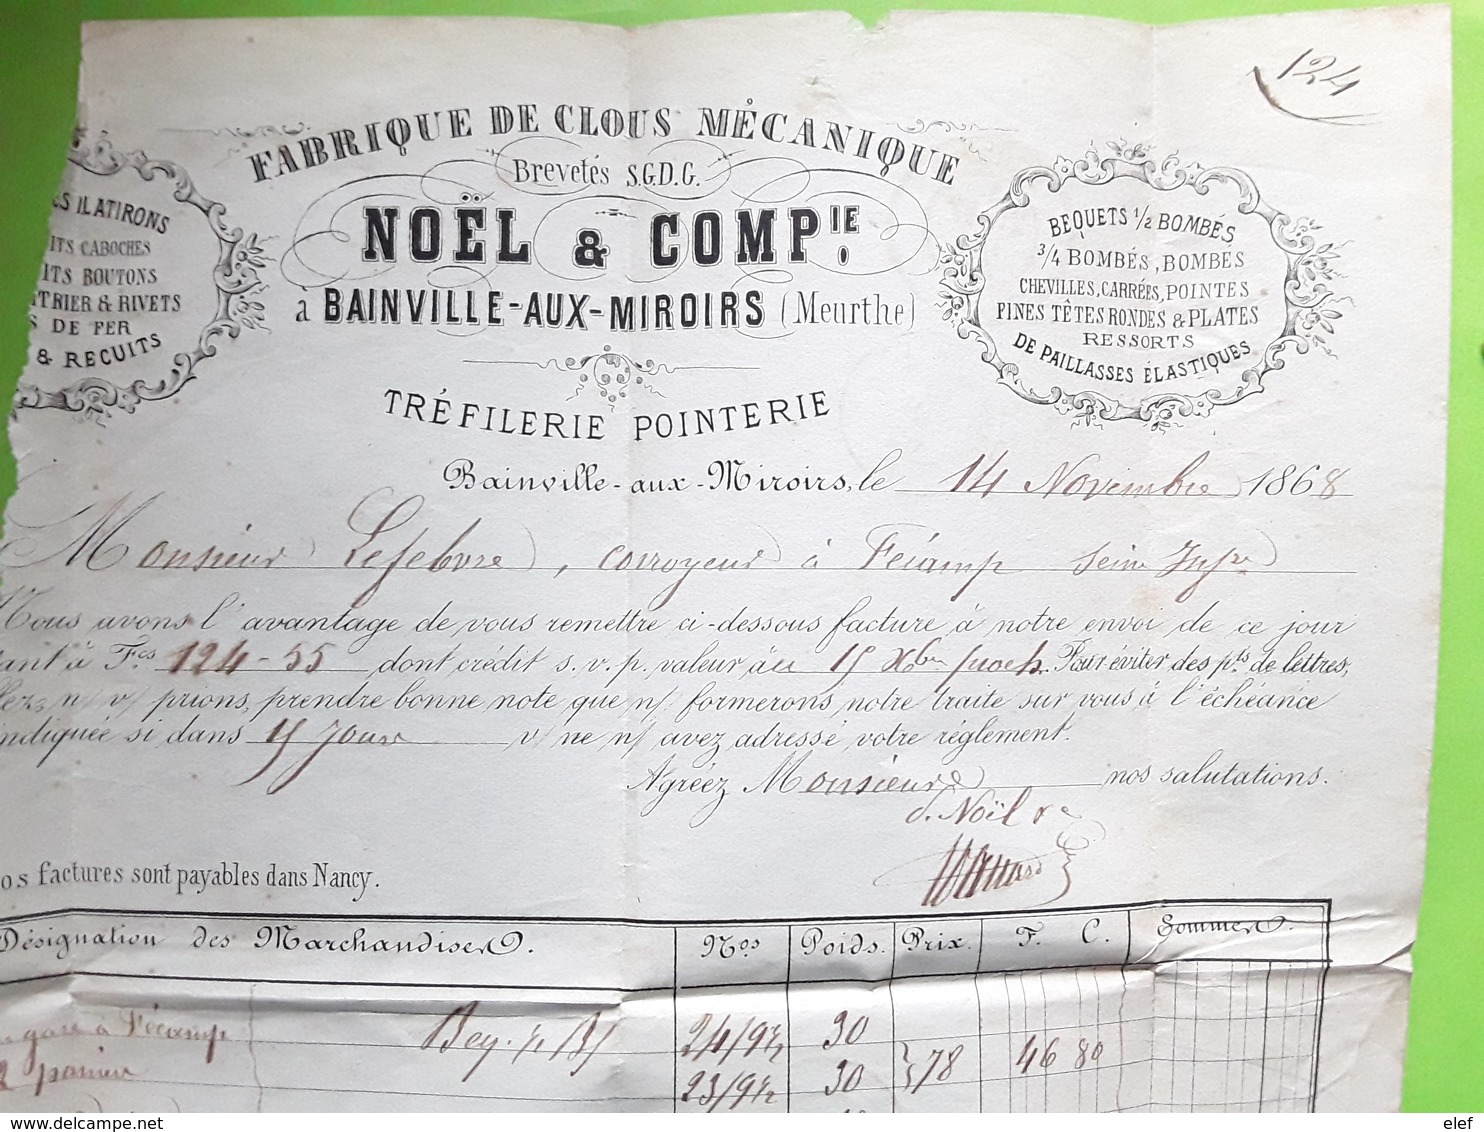 124
FABRIQUE DE CLOUS MÉCANIQUE
Brevetés S.G.D.G.
NOËL & COMPIE.
à BAINVILLE-AUX-MIROIRS (Meurthe)
TRÉFILERIE POINTERIE
S ILATIRONS
ITS CABOCHES
ITS BOUTONS
TRIER & RIVETS
S DE FER
& RECUITS
BEQUETS 1/2 BOMBÉS
3/4 BOMBÉS, BOMBÉS
CHEVILLES, CARRÉES, POINTES
FINES TÊTES RONDES & PLATES
RESSORTS
DE PAILLASSES ÉLASTIQUES
Bainville-aux-Miroirs, le 14 Novembre 1868
Monsieur Lefebvre, corroyeur à Fécamp Seine Infre
Nous avons l'avantage de vous remettre ci-dessous facture à notre envoi de ce jour
tant à Fcs 124-55 dont crédit s. v. p. valeur au 15 Xbre proch. Pour éviter des pts de lettres,
llez, n/ v/ prions, prendre bonne note que n/ formerons notre traite sur vous à l'échéance
indiquée si dans 15 Jours v/ ne n/ avez adressé votre réglement.
Agréez Monsieur nos salutations.
Noël
os factures sont payables dans Nancy.
Désignation des Marchandises. Nos Poids. Prix. F. C. Sommes.
gare à Fécamp Beq. 1/2 Bs 24/9 1/2 30
2 paniers 23/9 1/2 30 78 46 80